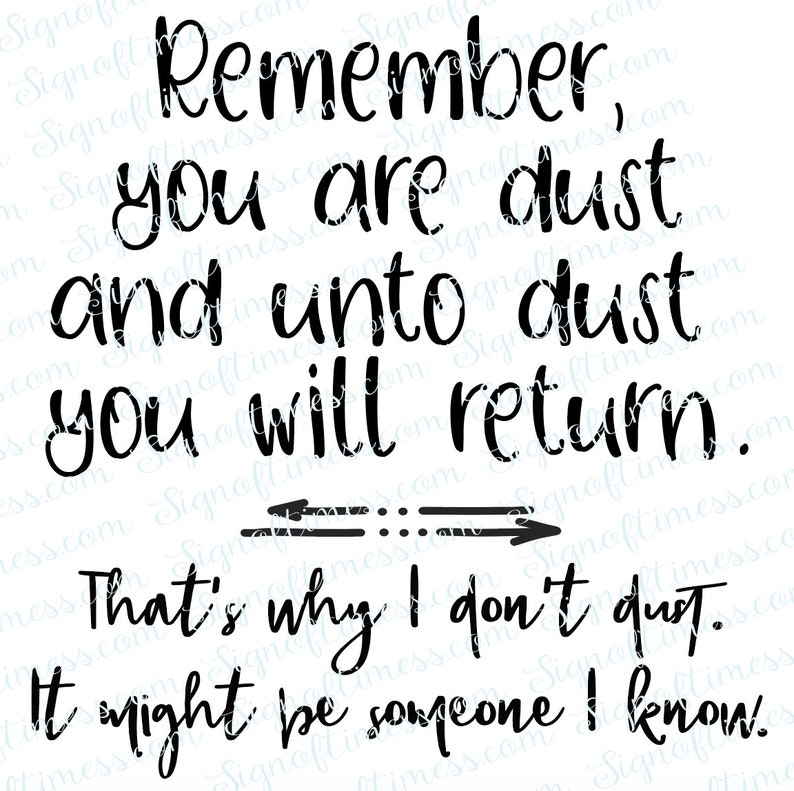 Remember,
you are dust
and unto dust
you will return.
That's why I don't dust.
It might be someone I know.
Signoftimess.com